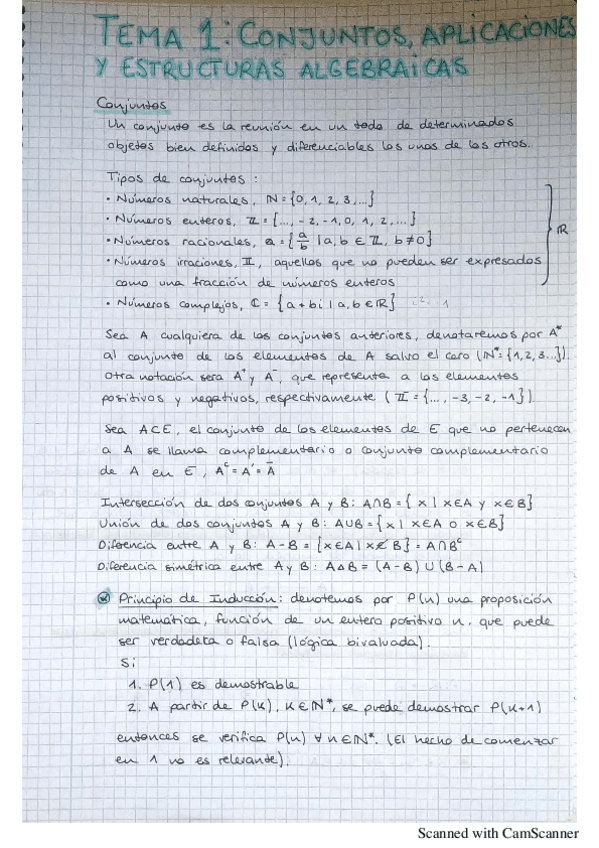 TEMA 1: CONJUNTOS, APLICACIONES
Y ESTRUCTURAS ALGEBRAICAS
Conjuntos
Un conjunto es la reunión en un todo de determinados
objetos bien definidos y diferenciables los unos de los otros.
Tipos de conjuntos:
· Números naturales, ℕ = {0, 1, 2, 3, ...}
· Números enteros, ℤ = {..., -2, -1, 0, 1, 2, ...}
· Números racionales, ℚ = {a/b | a, b ∈ ℤ, b ≠ 0}
ℝ
· Números irraciones, 𝕀, aquellos que no pueden ser expresados
como una fracción de números enteros
· Números complejos, ℂ = {a + bi | a, b ∈ ℝ}
Sea A cualquiera de los conjuntos anteriores, denotaremos por A*
al conjunto de los elementos de A salvo el cero (ℕ* = {1, 2, 3...}).
Otra notación será A⁺ y A⁻, que representa a los elementos
positivos y negativos, respectivamente (ℤ⁻ = {..., -3, -2, -1}).
Sea A⊂E, el conjunto de los elementos de E que no pertenecen
a A se llama complementario o conjunto complementario
de A en E, Aᶜ = A' = Ā
Intersección de dos conjuntos A y B: A∩B = {x | x∈A y x∈B}
Unión de dos conjuntos A y B: A∪B = {x | x∈A o x∈B}
Diferencia entre A y B: A - B = {x∈A | x∉B} = A∩Bᶜ
Diferencia simétrica entre A y B: A△B = (A-B) ∪ (B-A)
Principio de Inducción: denotemos por P(n) una proposición
matemática, función de un entero positivo n, que puede
ser verdadera o falsa (lógica bivaluada).
Si
1. P(1) es demostrable
2. A partir de P(k), k∈ℕ*, se puede demostrar P(k+1)
entonces se verifica P(n) ∀ n∈ℕ*. (El hecho de comenzar
en 1 no es relevante).
Scanned with CamScanner